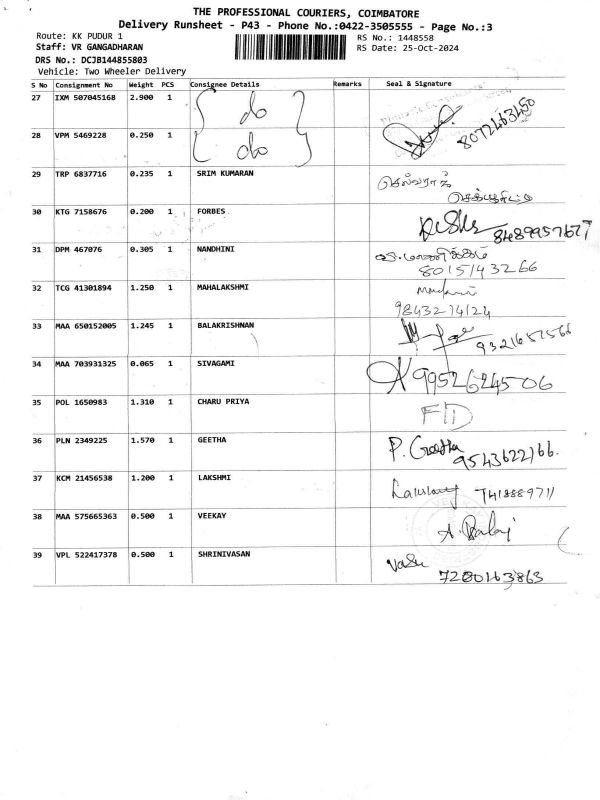 THE PROFESSIONAL COURIERS, COIMBATORE
Delivery Runsheet - P43 - Phone No.:0422-3505555 - Page No.:3
Route: KK PUDUR 1 RS No.: 1448558
Staff: VR GANGADHARAN RS Date: 25-Oct-2024
DRS No.: DCJB144855803
Vehicle: Two Wheeler Delivery
S No Consignment No Weight PCS Consignee Details Remarks Seal & Signature
27 IXM 507045168 2.900 1 do
28 VPM 5469228 0.250 1 do 8072463450
29 TRP 6837716 0.235 1 SRIM KUMARAN செல்வராஜ்
30 KTG 7158676 0.200 1 FORBES
31 DPM 467076 0.305 1 NANDHINI
8015143266
32 TCG 41301894 1.250 1 MAHALAKSHMI
9843274124
33 MAA 650152005 1.245 1 BALAKRISHNAN 9321657566
34 MAA 703931325 0.065 1 SIVAGAMI 9952624506
35 POL 1650983 1.310 1 CHARU PRIYA
36 PLN 2349225 1.570 1 GEETHA P. Geetha 9543622166.
37 KCM 21456538 1.200 1 LAKSHMI 7418889711
38 MAA 575665363 0.500 1 VEEKAY A. Balaj
39 VPL 522417378 0.500 1 SHRINIVASAN Vasu
7200163863